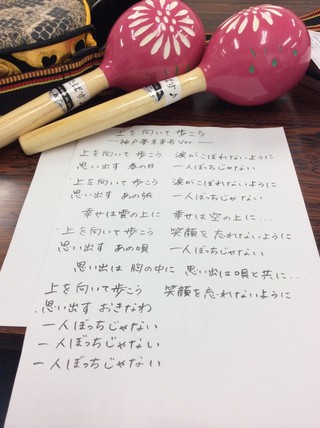 上を向いて歩こう
ー神戸夢未来号Verー
上を向いて歩こう 涙がこぼれないように
思い出す 春の日 一人ぼっちじゃない
上を向いて歩こう 涙がこぼれないように
思い出す あの旅 一人ぼっちじゃない
幸せは雲の上に 幸せは空の上に…
上を向いて歩こう 笑顔を忘れないように
思い出す あの唄 一人ぼっちじゃない
思い出は 胸の中に 思い出は唄と共に…
上を向いて歩こう 笑顔を忘れないように
思い出す おきなわ
一人ぼっちじゃない
一人ぼっちじゃない
一人ぼっちじゃない